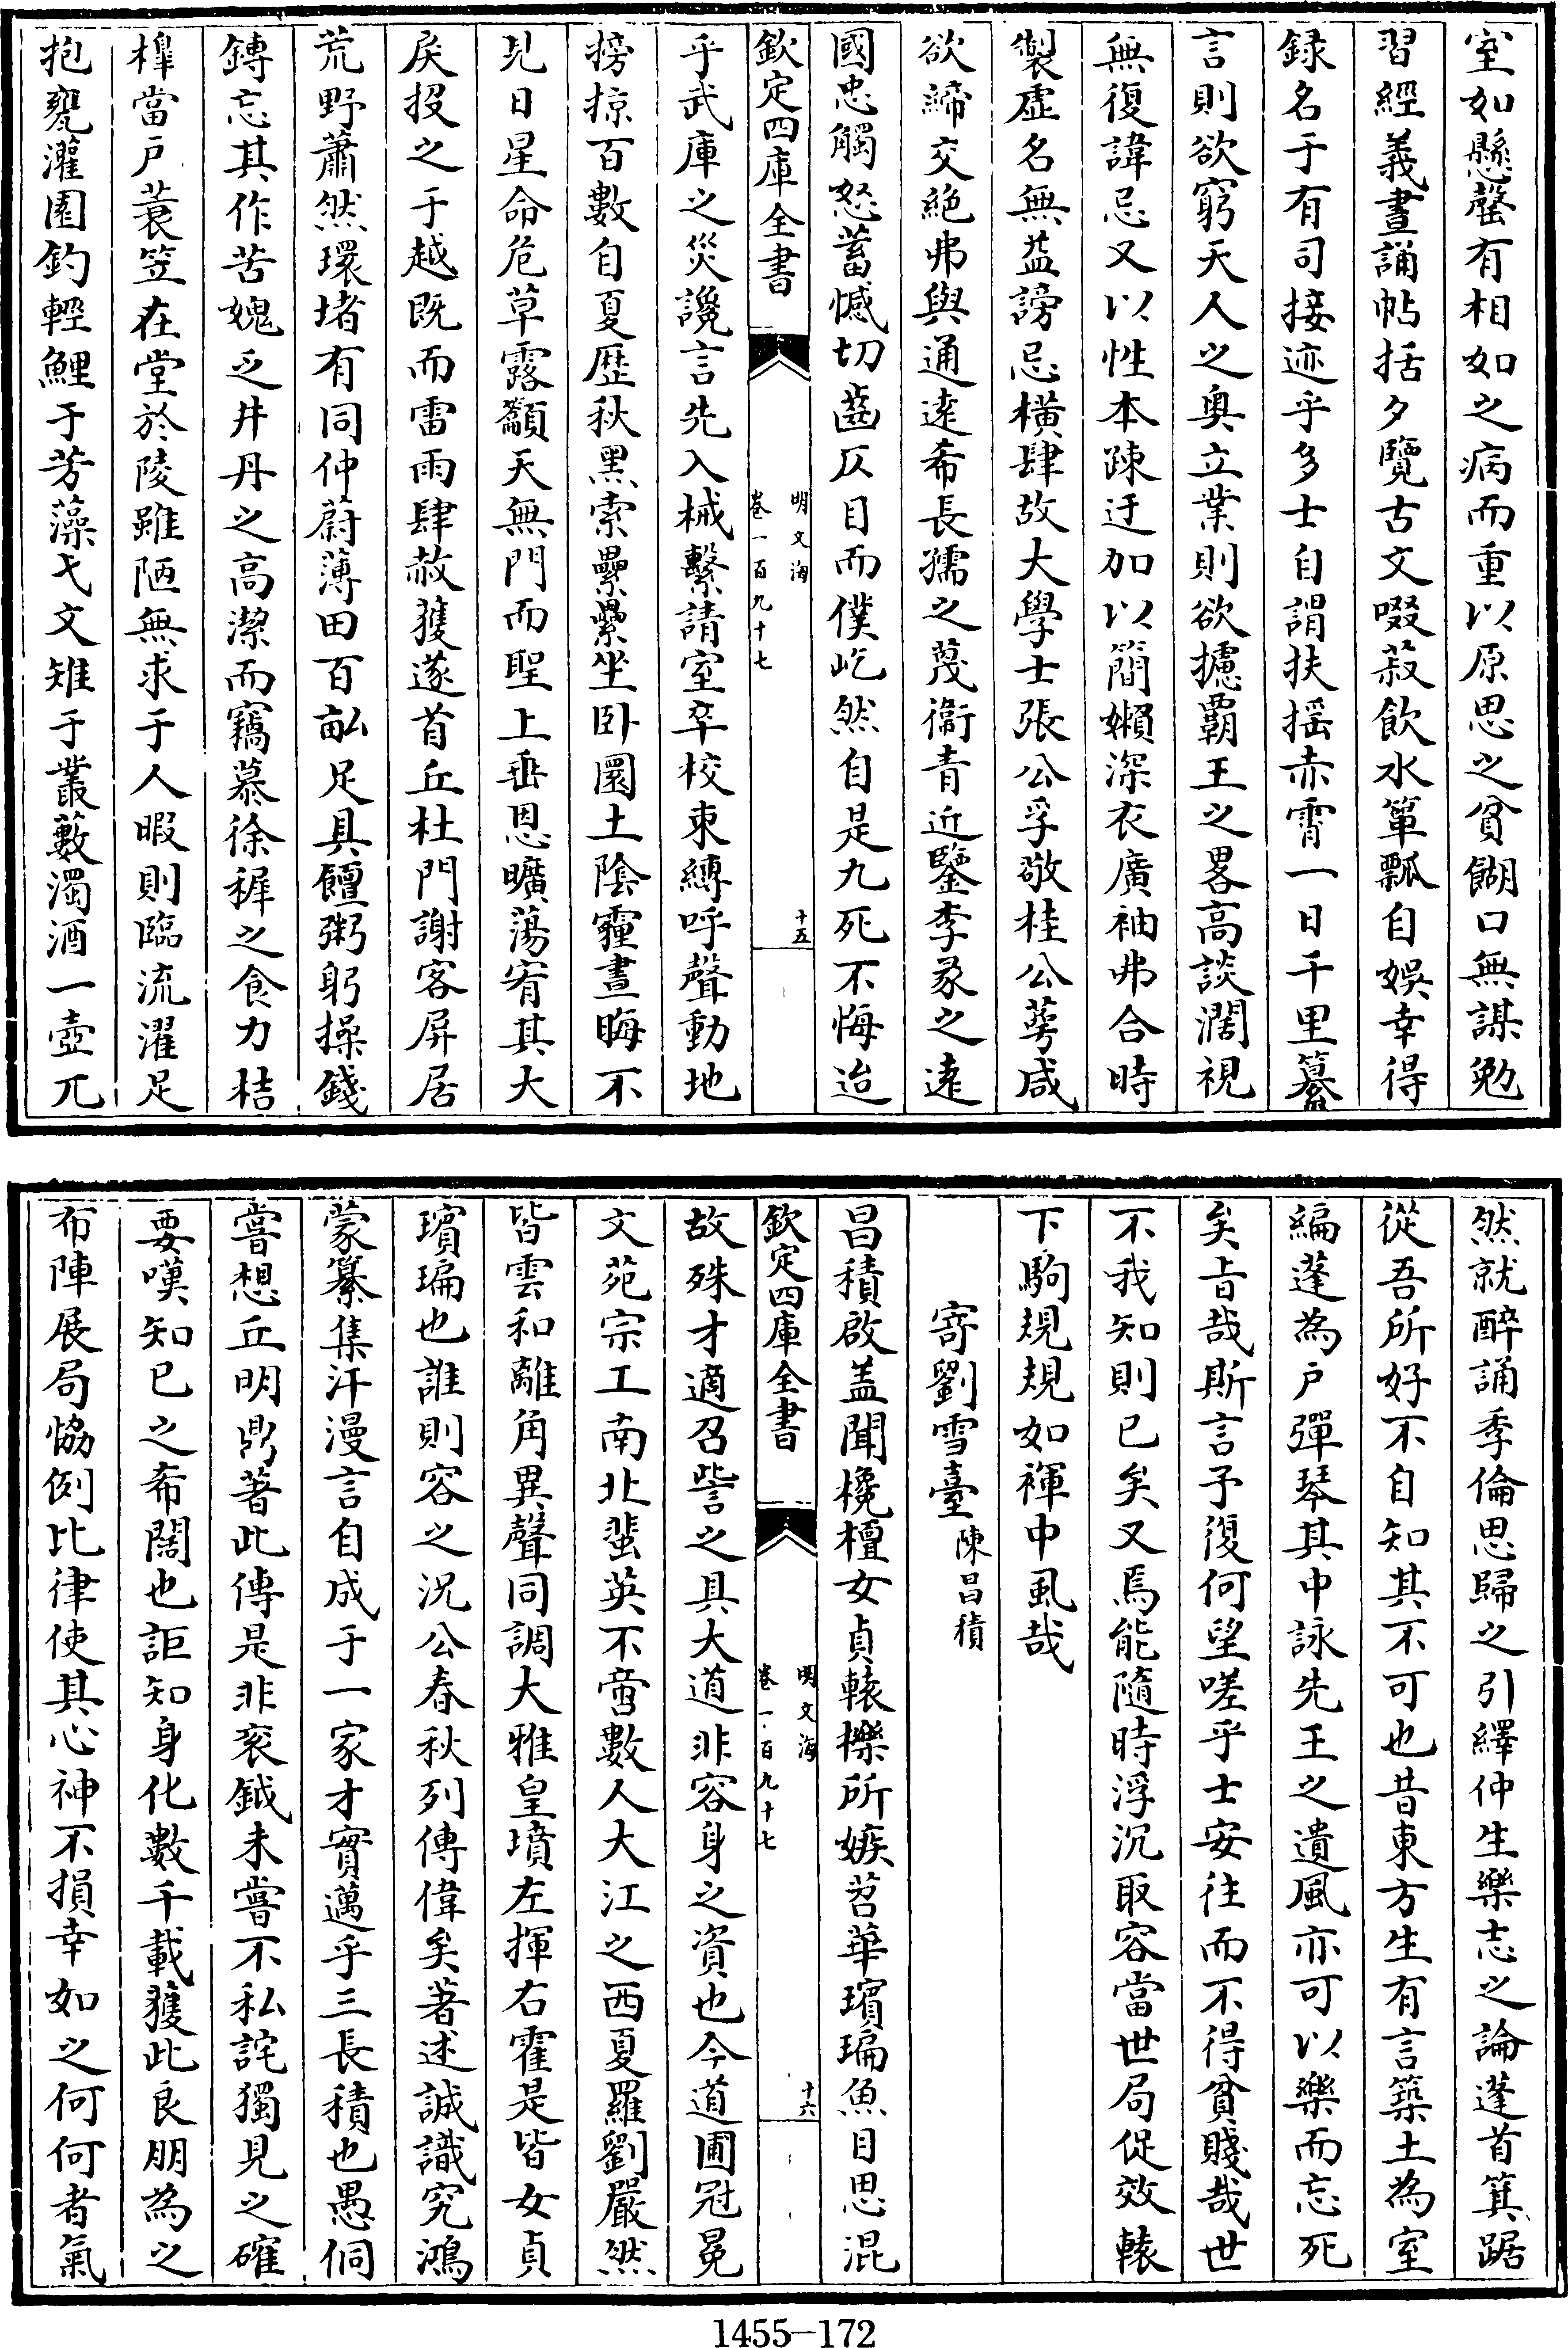 室如懸罄有相如之病而重以原思之貧餬口無謀勉
習經義晝誦帖括夕覽古文啜菽飲水簞瓢自娛幸得
録名于有司接迹乎多士自謂扶摇赤霄一日千里纂
言則欲窮天人之奥立業則欲攄覇王之畧高談濶視
無復諱忌又以性本疎迂加以簡嬾深衣廣袖弗合時
製虚名無益謗忌橫肆故大學士張公孚敬桂公萼咸
欲締交絶弗與通逺希長孺之蔑衞青近鑒李豖之逺
國忠觸怒蓄憾切齒仄目而僕屹然自是九死不悔迨
欽定四庫全書
明文海
卷一百九十七
十五
乎武庫之災讒言先入械繫請室卒校束縛呼聲動地
搒掠百數自夏歴秋黑索纍纍坐卧圜土陰霾晝晦不
見日星命危草露籲天無門而聖上垂恩曠蕩宥其大
戾投之于越既而雷雨肆赦獲遂首丘杜門謝客屏居
荒野蕭然環堵有同仲蔚薄田百畝足具饘粥躬操錢
鏄忘其作苦媿乏井丹之高潔而竊慕徐穉之食力桔
槹當户蓑笠在堂於陵雖陋無求于人暇則臨流濯足
抱甕灌園釣輕鯉于芳藻弋文雉于叢藪濁酒一壺兀
然就醉誦季倫思歸之引繹仲生樂志之論蓬首箕踞
從吾所好不自知其不可也昔東方生有言築土為室
編蓬為户彈琴其中詠先王之遺風亦可以樂而忘死
矣㫖哉斯言予復何望嗟乎士安往而不得貧賤哉世
不我知則已矣又焉能隨時浮沉取容當世局促效轅
下駒規規如褌中虱哉
寄劉雪臺陳昌積
昌積啟盖聞欃檀女貞轅櫟所嫉苕華璸㻞魚目思混
欽定四庫全書
明文海
卷一百九十七
十六
故殊才適召訾之具大道非容身之資也今道圃冠冕
文苑宗工南北蜚英不啻數人大江之西夏羅劉嚴然
皆雲和離角異聲同調大雅皇墳左揮右霍是皆女貞
璸㻞也誰則容之况公春秋列傳偉矣著述誠識究鴻
蒙纂集汗漫言自成于一家才實邁乎三長積也愚侗
嘗想丘明鼎著此傳是非衮鉞未嘗不私詫獨見之確
要嘆知已之希闊也詎知身化數千載獲此良朋為之
布陣展局恊例比律使其心神不損幸如之何何者氣
1455—172